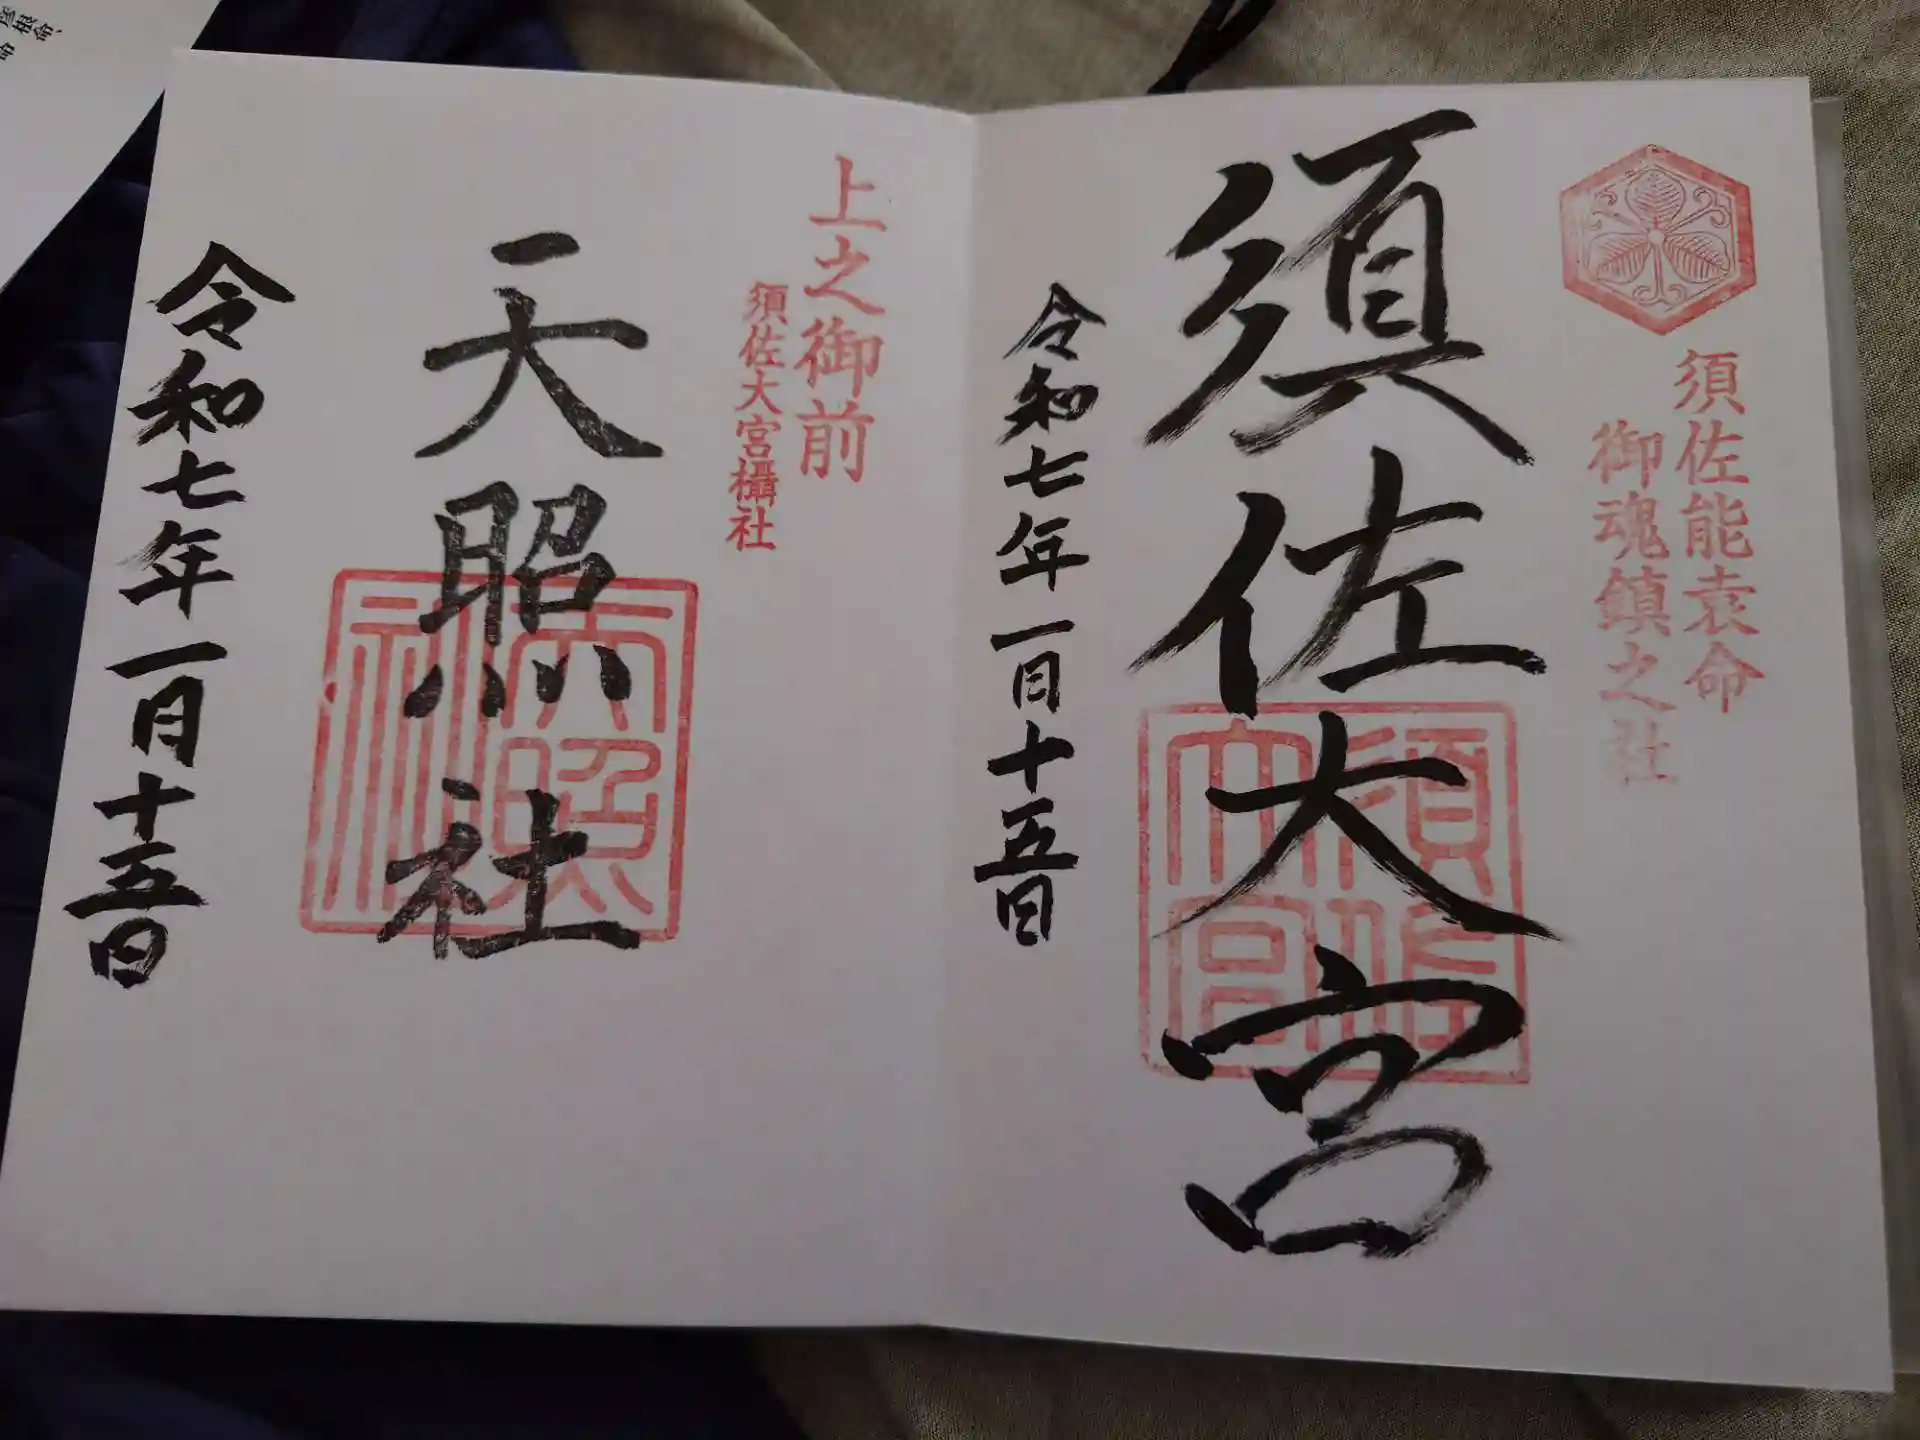 須佐能袁命
御魂鎮之社
須佐大宮
須佐
大宮
令和七年一月十五日
上之御前
須佐大宮攝社
天照社
天照
社
令和七年一月十五日
彦根命、
命